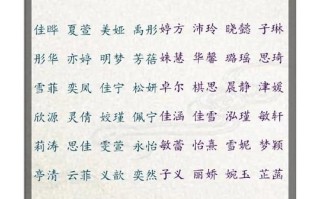 佳晔 夏萱 美娅 禹彤 婷方 沛玲 晓懿 子琳
彤华 亦婷 明梦 芳蓓 姝慧 华馨 璐瑶 思琦
雪菲 奕凤 佳宁 松妍 卓尔 棋思 晨静 津媛
欣源 灵倩 姣瑾 佩宁 佳涵 佳雪 泓瑾 敏轩
莉涛 思佳 雯萱 永怡 敏蕾 怡熹 雪妮 梦颖
亭清 云菲 义歆 奕然 子义 丽娇 婉玉 芷菡